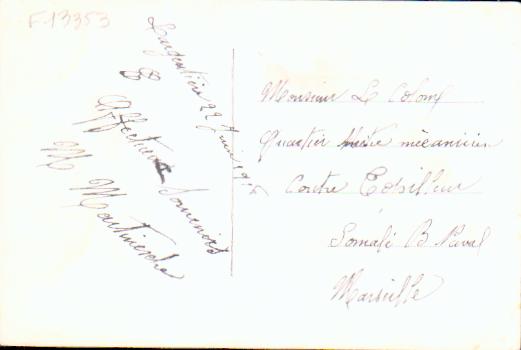 F-13353
Largentière 22 Juin
&
Affectueux Souvenirs
M Martinesche
Monsieur Le Colomb
Quartier Maître mécanicien
Contre Torpilleur
Somali B Naval
Marseille